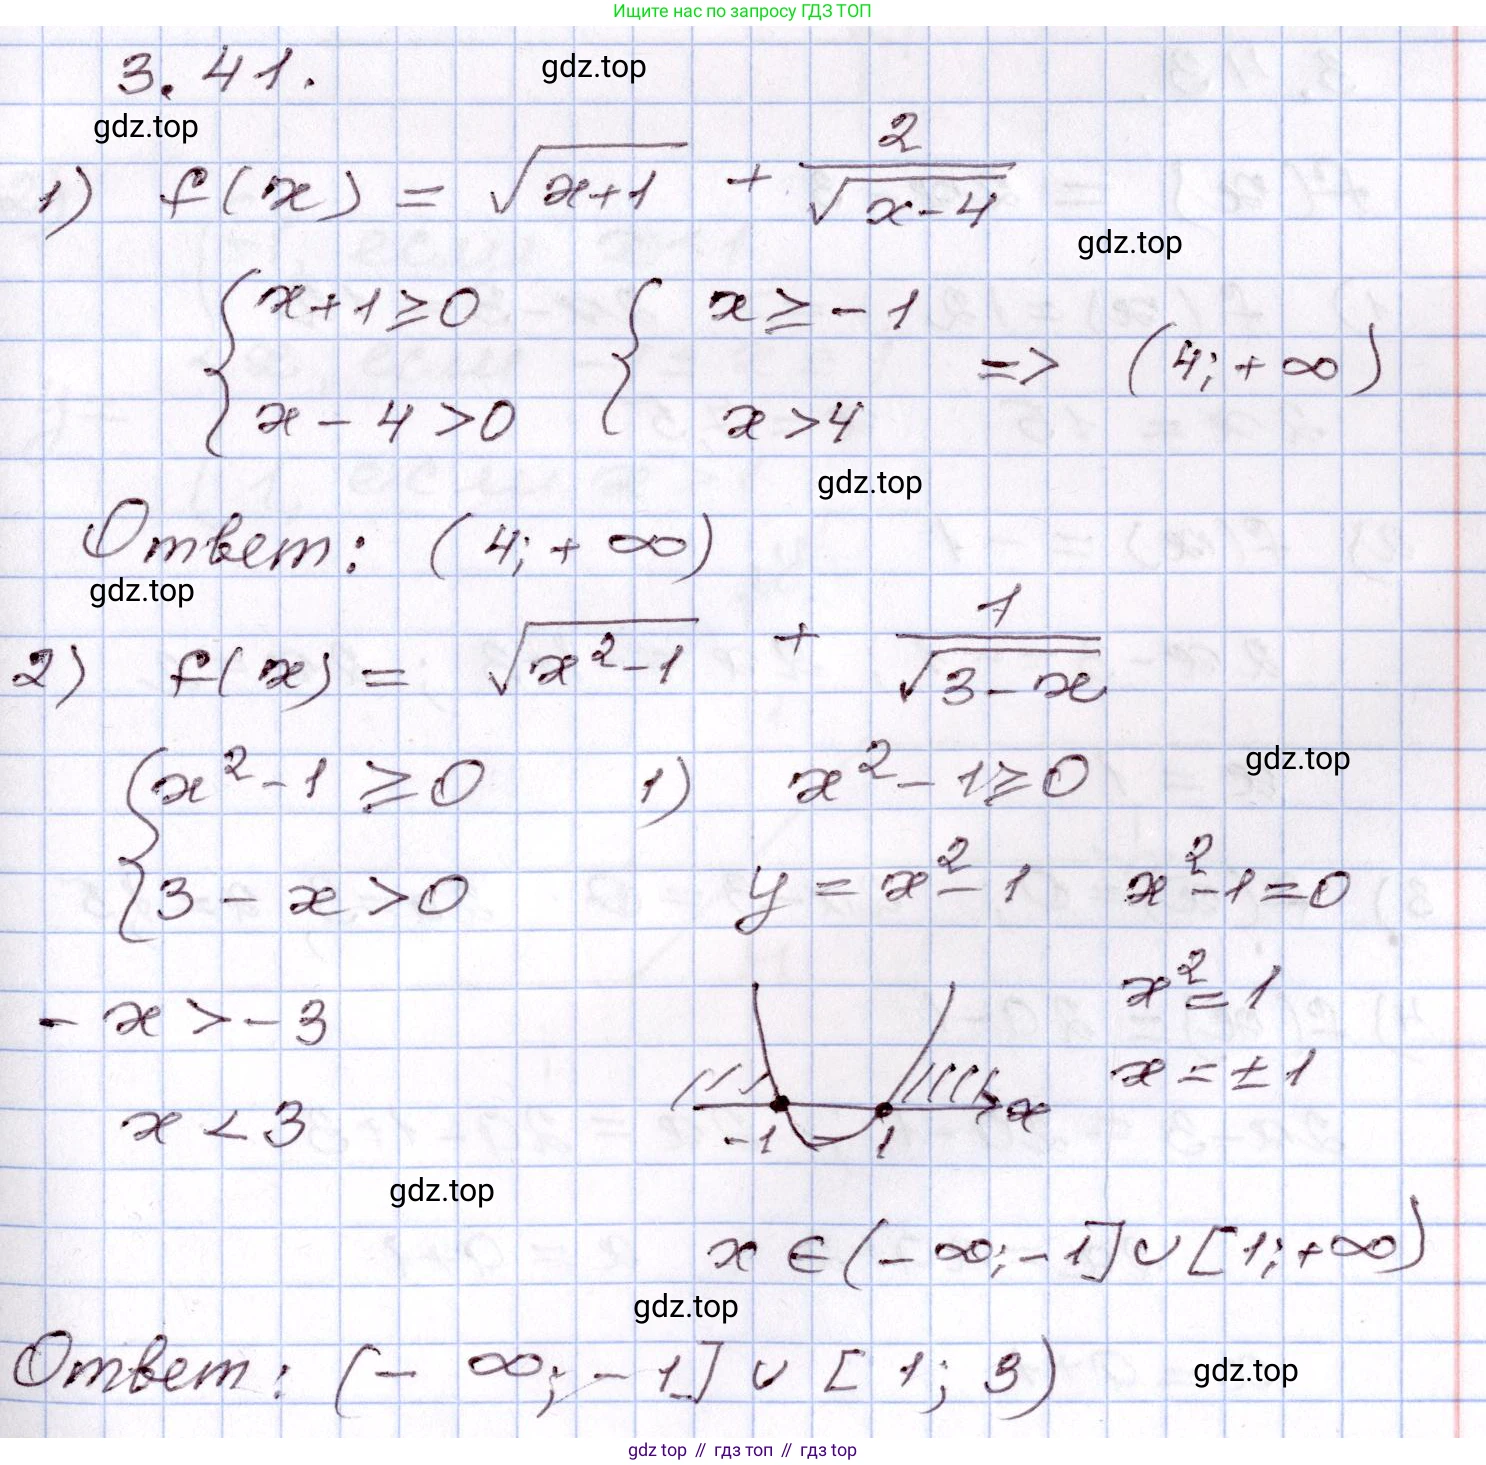 Ищите нас по запросу ГДЗ ТОП
3.41.
gdz.top
gdz.top
1) f(x) = √(x+1) + 2/√(x-4)
gdz.top
{x+1≥0 {x≥-1
=> (4;+∞)
x-4>0 x>4
gdz.top
Ответ: (4;+∞)
gdz.top
2) f(x) = √(x²-1) + 1/√(3-x)
{x²-1≥0 1) x²-1≥0
gdz.top
3-x>0 y=x²-1 x²-1=0
-x>-3 x²=1
x=±1
x<3 -1 1 x
gdz.top
x∈(-∞;-1]∪[1;+∞)
gdz.top
Ответ: (-∞;-1]∪[1;3)
gdz.top
gdz top // гдз топ // гдз top